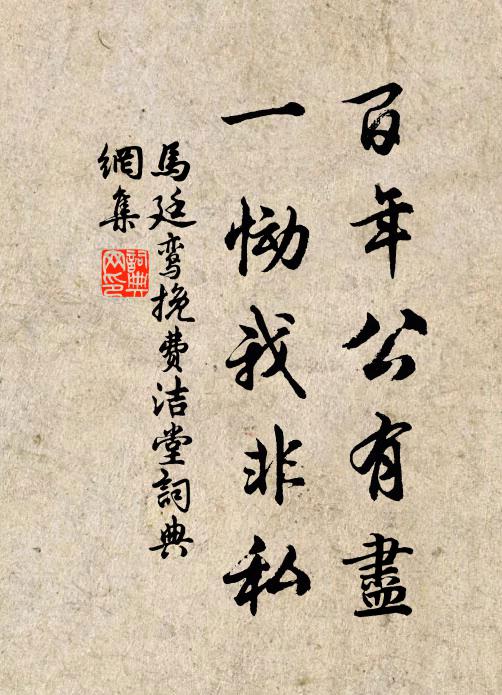 百年公有盡
一慟我非私
馬廷鸞挽費洁堂詞典
網集
詞典网印